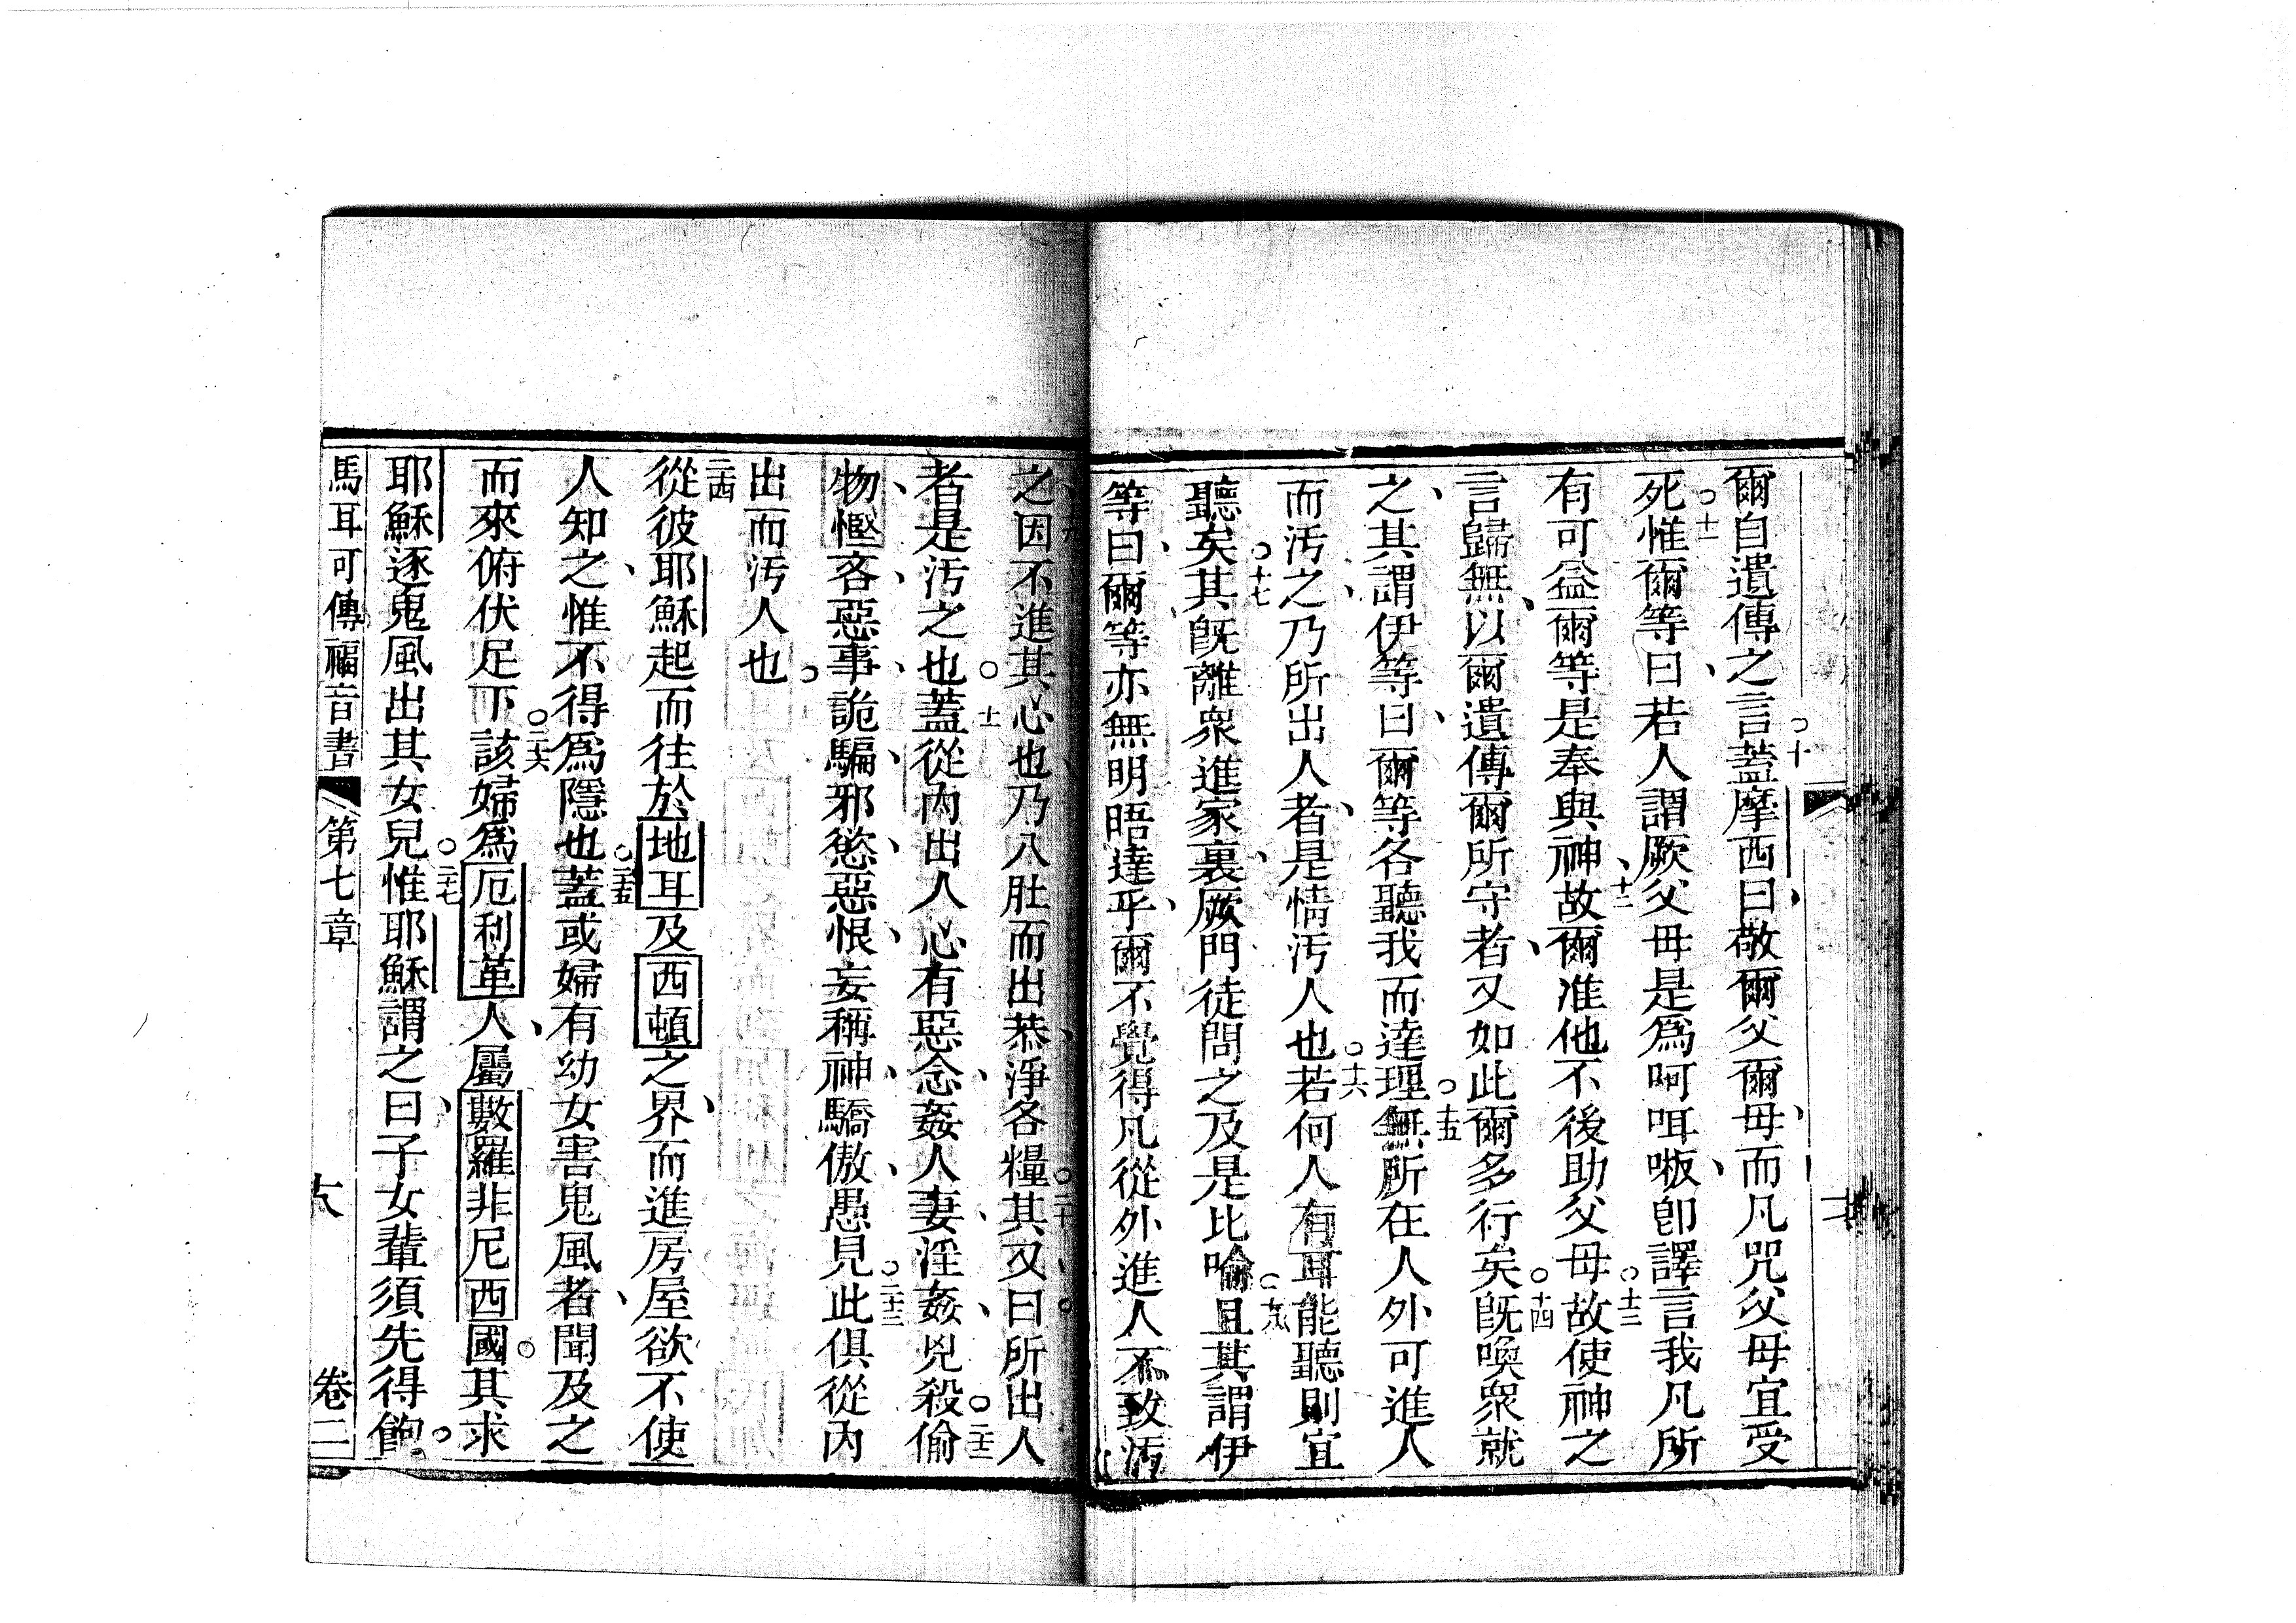 爾自遺傳之言○十蓋摩西曰敬爾父爾母、而凡咒父母宜受
死○十一惟爾等曰、若人謂厥父母是爲呵咡㗑、卽譯言我凡所
有可益爾等是奉與神、十二故爾准他不後助父母○十三故使神之
言歸無、以爾遺傳爾所守者、又如此爾多行矣○十四旣喚衆就
之、其謂伊等曰、爾等各聽我而達理○十五無所在人外可進人
而汚之、乃所出人者、是情汚人也○十六若何人有耳能聽則宜
聽矣○十七其旣離衆進家裏、厥門徒問之及是比喻○十八且其謂伊
等曰、爾等亦無明晤達乎、爾不覺得凡從外進人不致汚
之、十九因不進其心也、乃入肚而出恭、淨各糧○二十其又曰所出人
者是汚之也○二十一蓋從內出人心有惡念、姦人妻、淫姦、兇殺○二十二偷
物、慳吝、惡事、詭騙、邪慾、惡恨、妄稱神、驕傲、愚見○二十三此俱從內
出而汚人也○
二十四從彼耶穌起而往於地耳及西頓之界、而進房屋欲不使
人知之、惟不得爲隱也○二十五蓋或婦有幼女害鬼風者、聞及之
而來俯伏足下○二十六該婦爲厄利革人、屬數羅非尼西國○其求
耶穌逐鬼風出其女兒○二十七惟耶穌謂之曰、子女輩須先得飽○
馬耳可傳福音書 第七章 十八 卷二